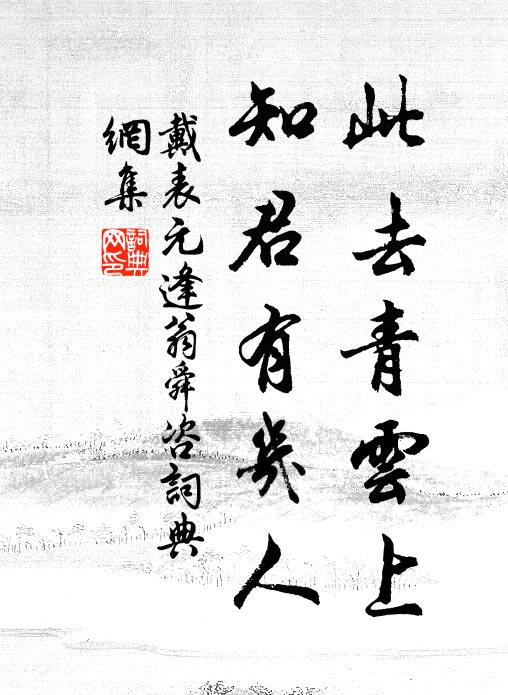 此去青雲上
知君有幾人
戴表元逢翁舜咨詞典
網集
詞典
网印